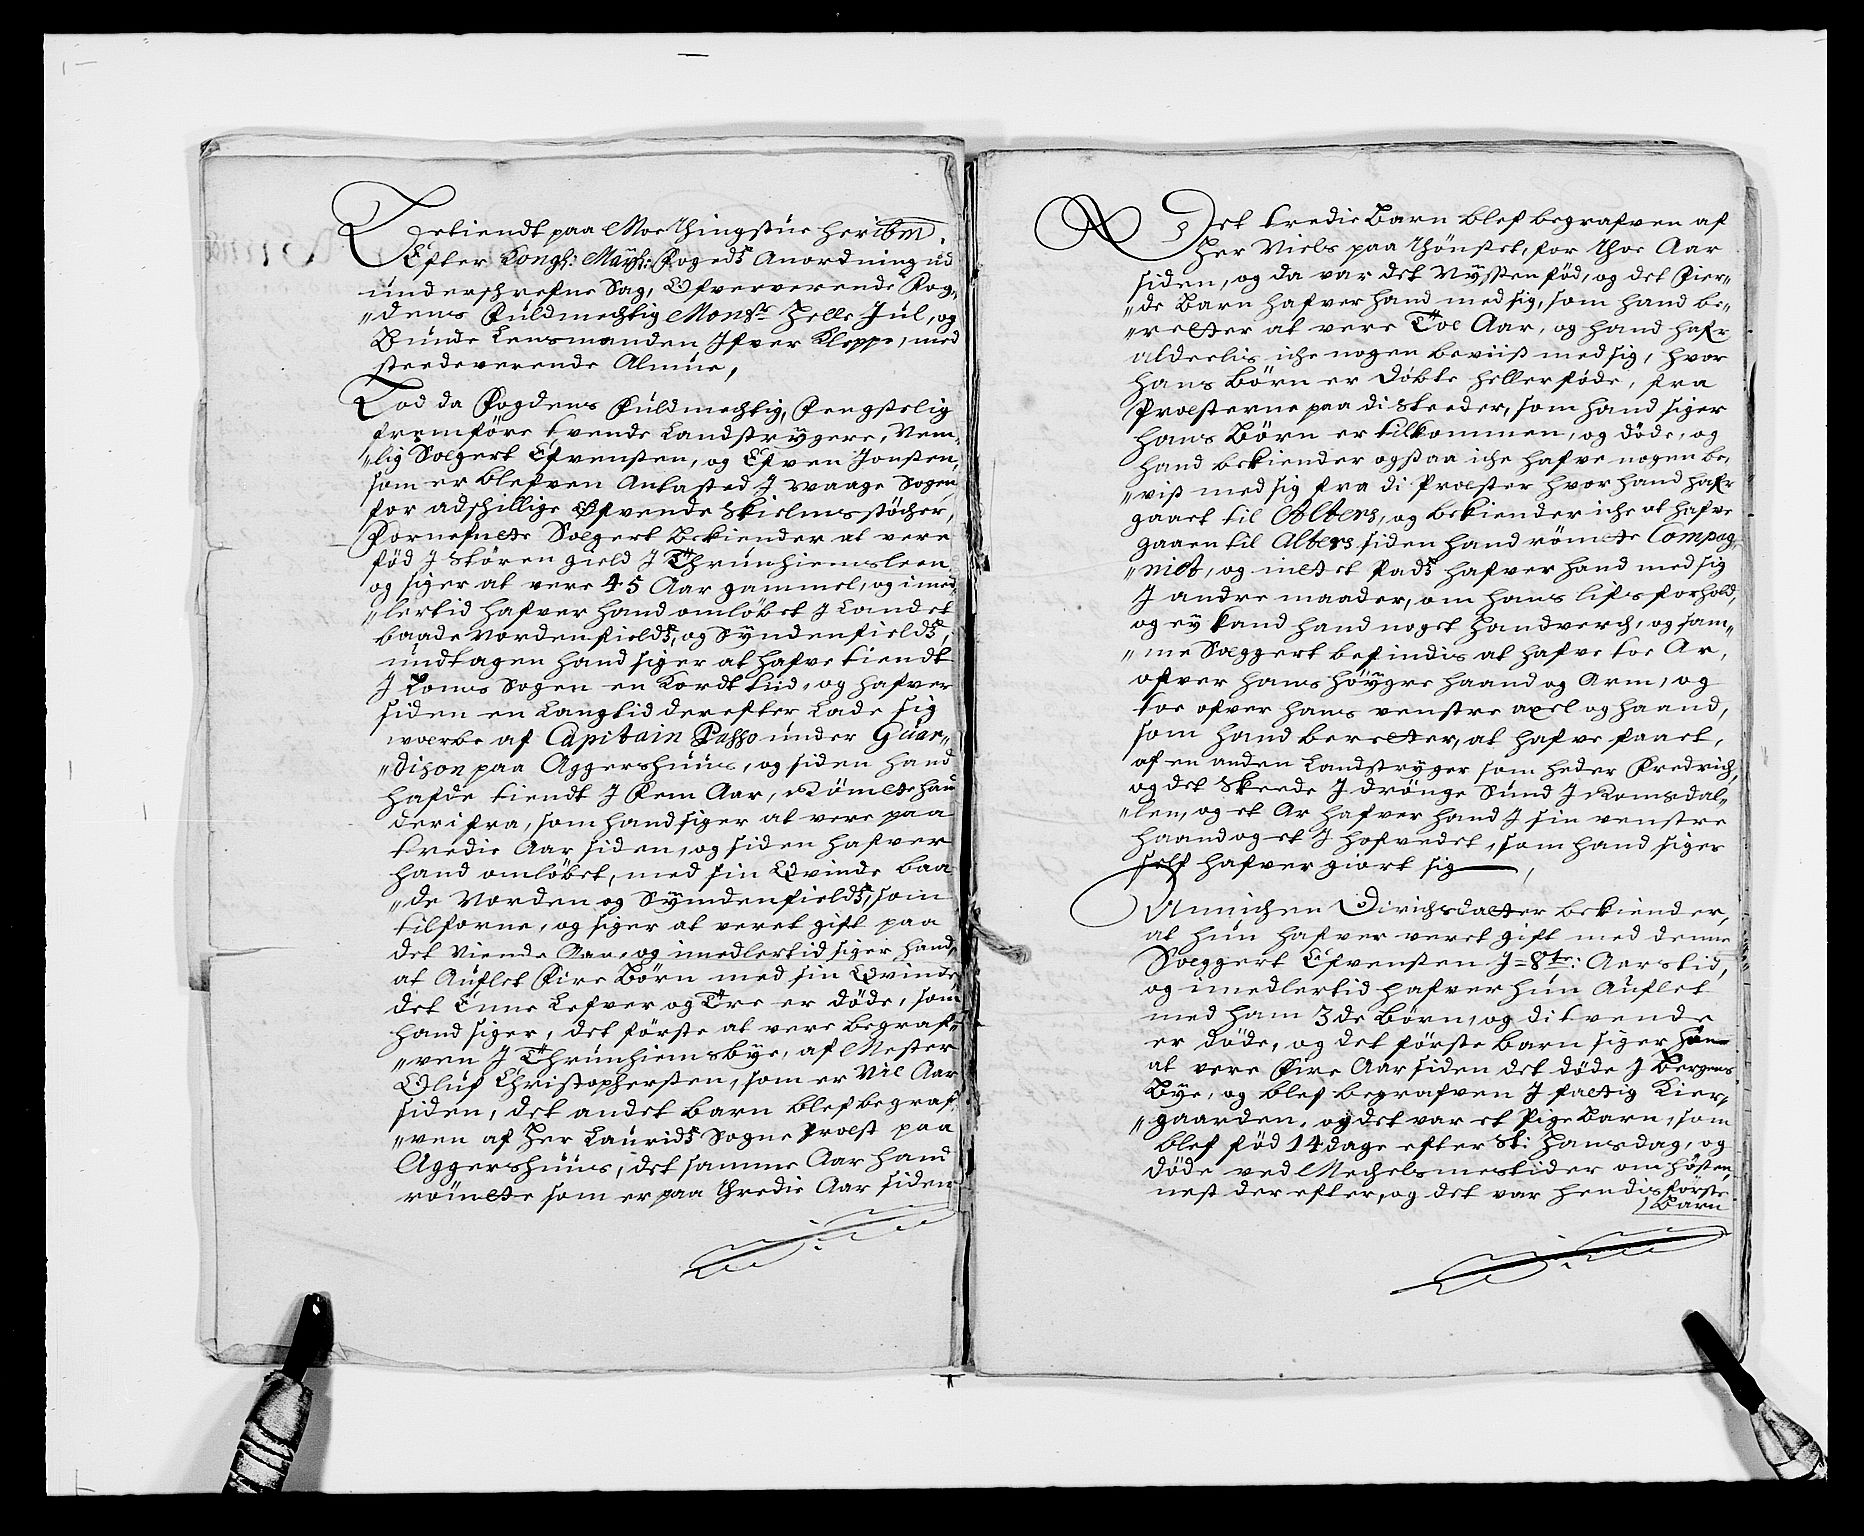 Betiendt paa Moe thingstue her ibm.
Efter Kongh: Maÿh: Fogedß Anordning ud
underschrefne Sag, Ofververende Fog„
„dens Fuldmechtig Monsr Zelle Jul, og
Bunde Lensmanden Jfver Kleppe, med
steedeverende Almue,
Lod da Fogdens Fuldmechtig, Fengstelig
fremföre tvende Landstrÿgere, Nem„
„lig Soegert Efvensten, og Efven Jonsten,
som er blefven Antasted J waage Sogen
for adschillige Ofvende Skielmsstöcher,
Fornefnete Soegert Bekiender at vere
föd J Stören gield J Thrunhiemsleen
og siger at vere 45 Aar gammel, og imed„
„lertid hafver hand omlöbet J Landet
baade Nordenfieldß, og Sÿndenfieldß,
undtagen hand siger at hafve tiendt
J Loms Sogen en Kordt tiid, og hafver
siden en Langtid derefter Lade sig
woerbe af Capitain Passo under Guar„
„dison paa Aggershuus, og siden hand
hafde tiendt J Fem Aar, Römete hand
derifra, som hand siger at vere paa
tredie Aar siden, og siden hafver
hand omlöbet, med sin Qvinde baa
„de Norden og Sÿndenfieldß, som
tilforne, og siger at veret gift paa
det Niende Aar, og imedlertid siger hand,
at Auflet Fire Börn med sin Qvinde
det Enne Lefver og Tre er döde, som
hand siger, det förste at vere begraf„
„ven J Thrunhiemsbÿe, af Mester
Oluf Christophersten, som er Nie Aar
siden, det andet barn blef begraf„
„ven af Her Lauridß Sogne Proest paa
Aggershuus, det samme Aar hand
römete som er paa thredie Aar siden
Det tredie Barn blef begrafven af
Her Niels paa Thönstet, for thoe Aar
siden, og da var det Nÿsten föd, og det Fier„
„de Barn hafver hand med sig, som hand be„
„retter at vere Toe Aar, og hand hafr
aldeelis iche nogen beviiß med sig, hvor
hans Börn er döbte heller föde, fra
Proesterne paa di Steeder, som hand siger
hans Börn er tilkommen, og döde, og
hand bekiender ogstaa iche hafve nogen be„
„viß med sig fra di Proester hvor hand hafr
gaaet til Alters, og bekiender iche at hafve
gaaen til Alters siden hand römete Compag„
„niet, og inet et Padß hafver hand med sig
J andre maader, om hans lifs forhold,
og eÿ kand hand noget Handverch, og sam„
„me Soeggert befindis at hafve toe Ar,
ofver hans höÿgre haand og Arm, og
toe ofver hans venstre axel og haand,
som hand beretter, at hafve faaet,
af en anden Landstrÿger som heder Fredrich,
og det Skeede J drönge Sund J Romsdal„
„len, og et Ar hafver hand J sin venstre
haand og et J hofvedet, som hand siger
self hafver giort sig,
Annichen Dirichsdatter bekiender,
at hun hafver veret gift med denne
Soeggert Efvensten J=8te: Aars tid,
og imedlertid hafver hun Auflet
med ham 3de Börn, og di tvende
er döde, og det förste barn siger hun
at vere Fire Aar siden det döde J Bergens
Bÿe, og blef begrafven J fattig Kier„
„gaarden, og det var et Pige Barn, som
blef föd 14 dage efter St: Hansdag, og
döde ved Mechelsmestider om hösten,
nest derefter, og det var hendis förste
Barn